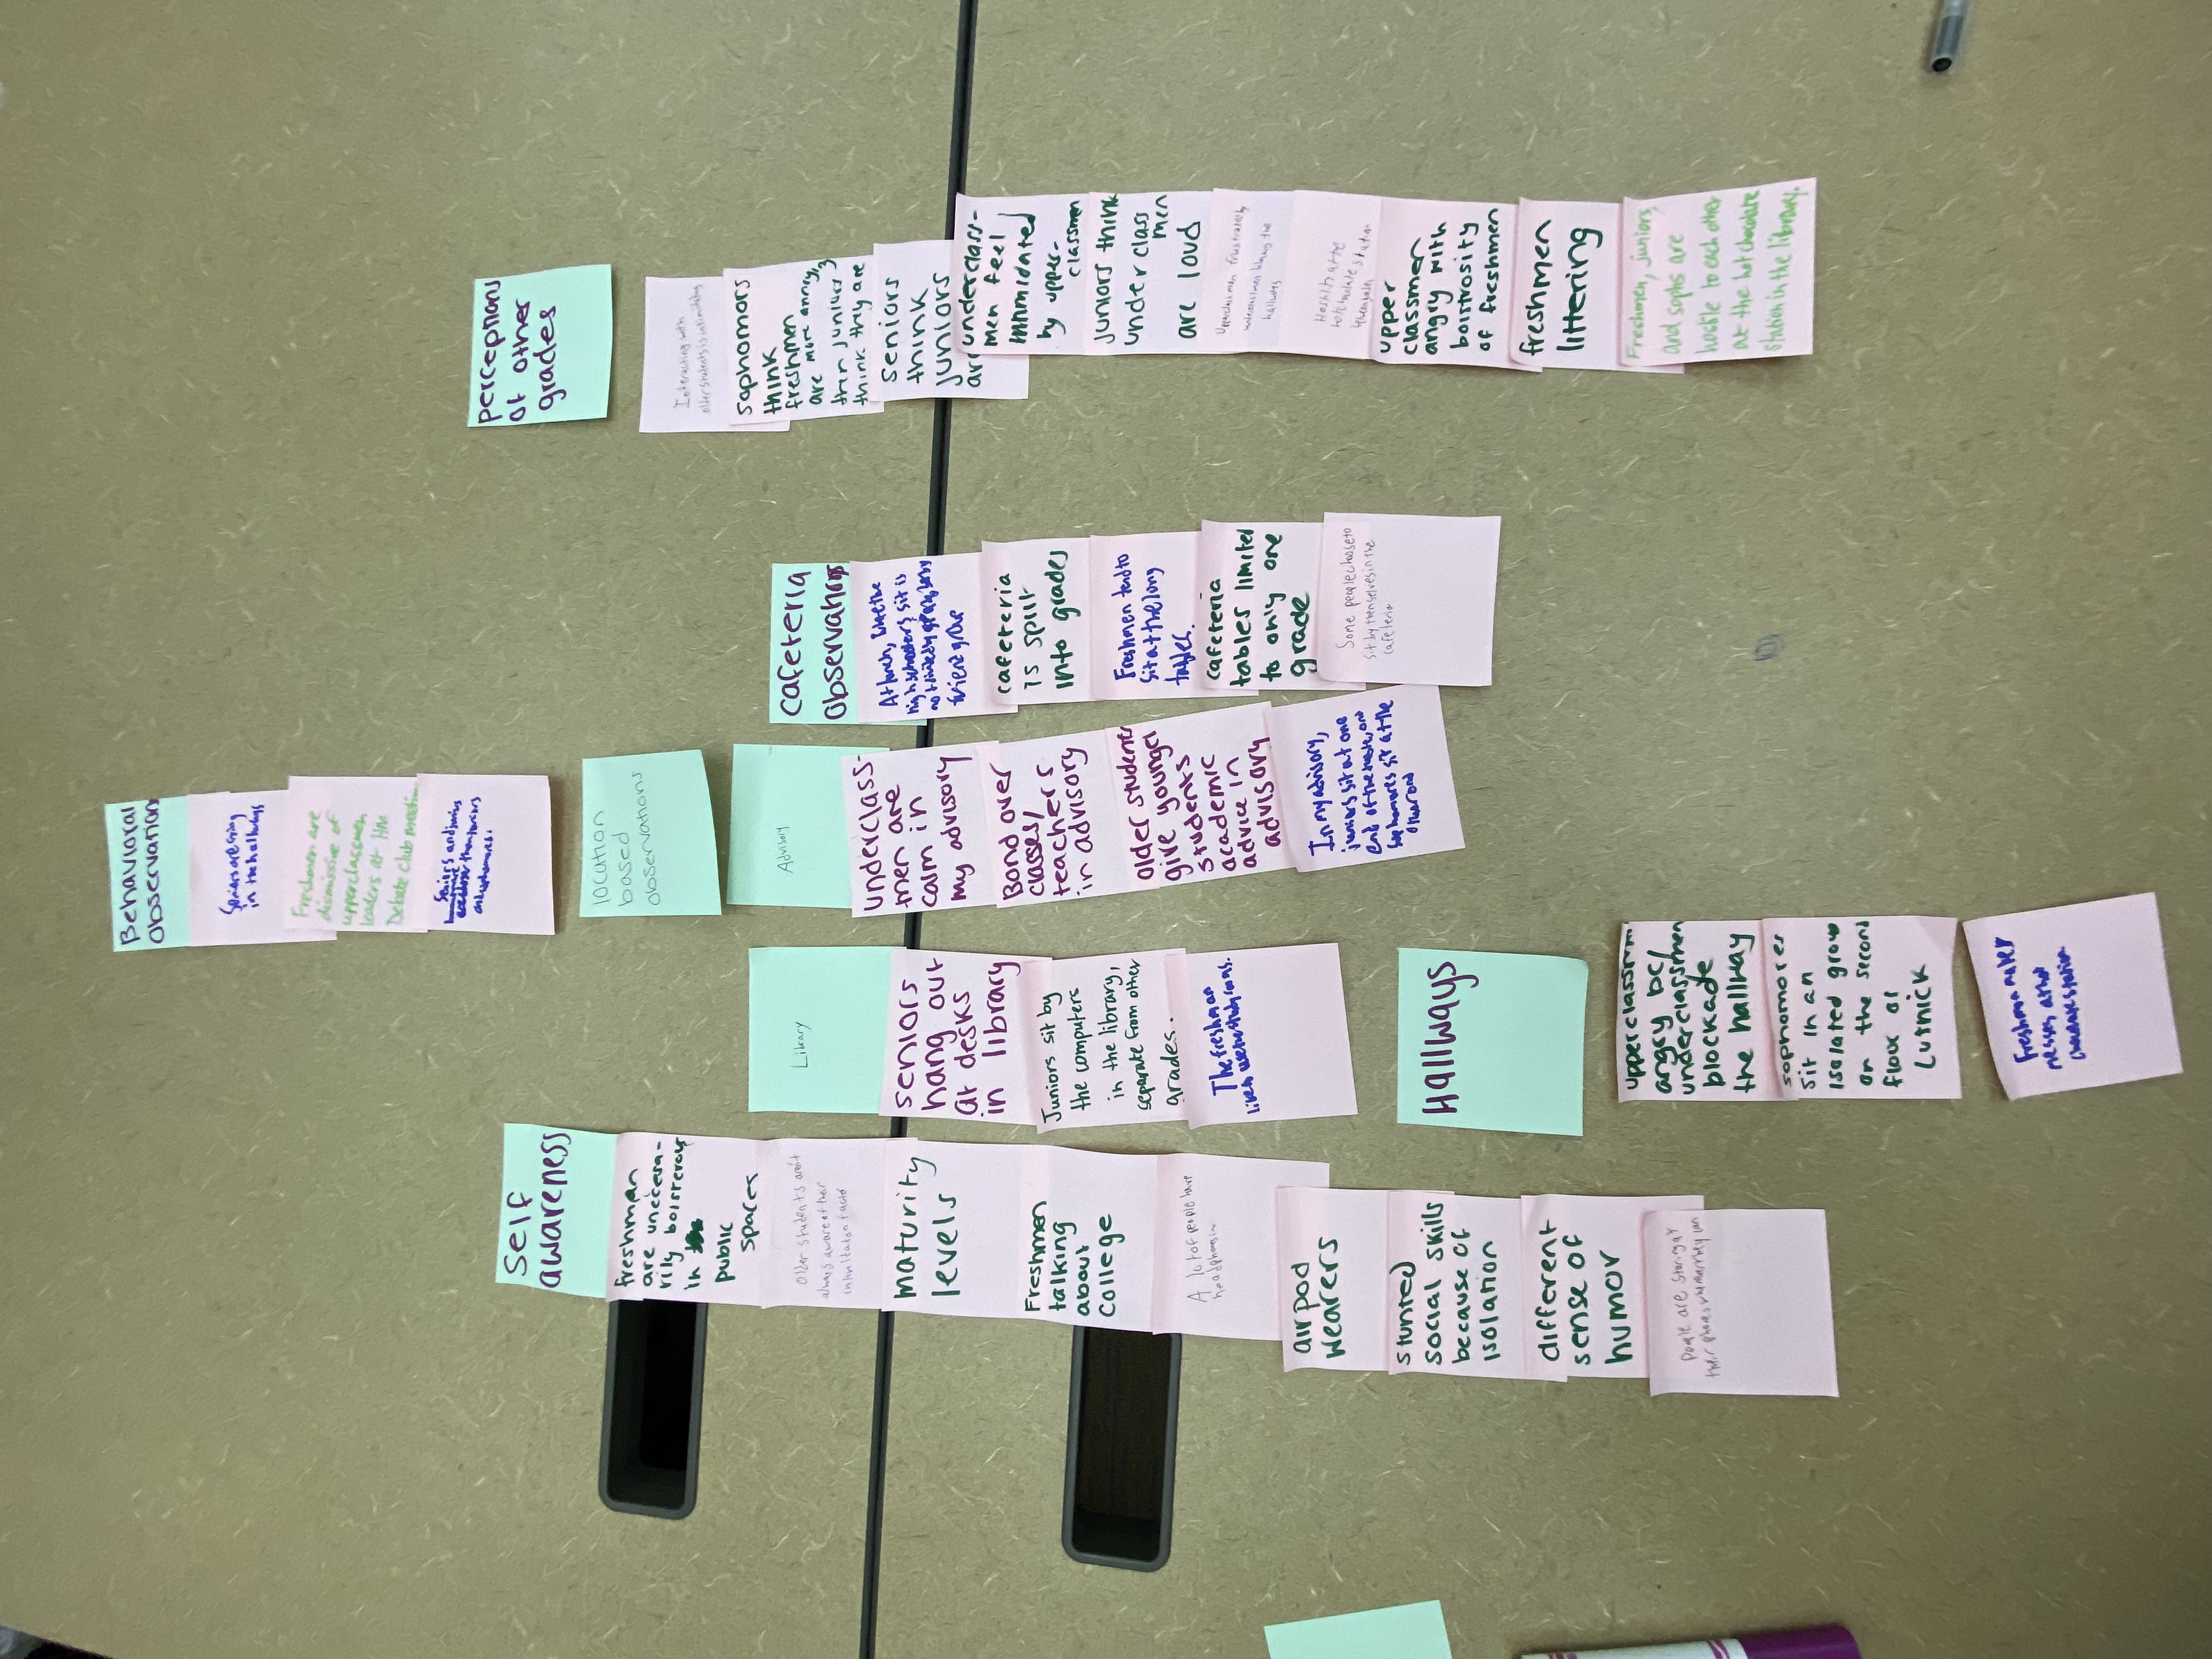 Behavioral
observation
Seniors are
in the hallways
Freshmen are
dismissive of
upperclassmen
leaders at HM
Debate Club
Seniors and juniors
are closer than juniors
and sophomores.
Self
awareness
freshman
are unecessa-
rily boisterous
in
public
spaces
Older students aren't
always aware of their
factor
maturity
levels
Freshmen
talking
about
college
A lot of people have
headphones in
airpod
wearers
stunted
social skills
because of
isolation
different
sense of
humor
People are staring at
their phones they can
location
based
observations
Library
seniors
hang out
at desks
in library
Juniors sit by
the computers
in the library,
separate from other
grades.
The freshman
use the study rooms.
Hallways
upperclassmen
angry bc/
underclassmen
blockade
the hallway
sophomores
sit in an
isolated group
on the second
floor of
Lutnick
Freshman
messes at hot
chocolate station
Advisory
underclass-
men are
calm in
my advisory
Bond over
classes/
teachers
in advisory
older students
give younger
students
academic
advice in
advisory
In my advisory,
juniors sit at one
end of the table, and
sophomores sit at the
other end
cafeteria
observations
At lunch, where the
high schoolers sit is
not limited by
friend group
cafeteria
is split
into grades
Freshmen tend to
sit at the long
tables.
cafeteria
tables limited
to only one
grade
Some people choose to
sit by themselves in the
cafeteria
perceptions
of other
grades
Interacting with
older students is intimidating
sophomors
think
freshmen
are more annoying
than juniors
think they are
seniors
think
juniors
are
underclass-
men feel
inimidated
by upper-
classmen
juniors think
underclass
men
are loud
Upperclassmen frustrated by
underclassmen blocking the
hallways
at the
hot chocolate station
upper
classmen
angry with
boistrosity
of freshmen
freshmen
littering
Freshmen, juniors,
and sophs are
hostile to each other
at the hot chocolate
station in the library.